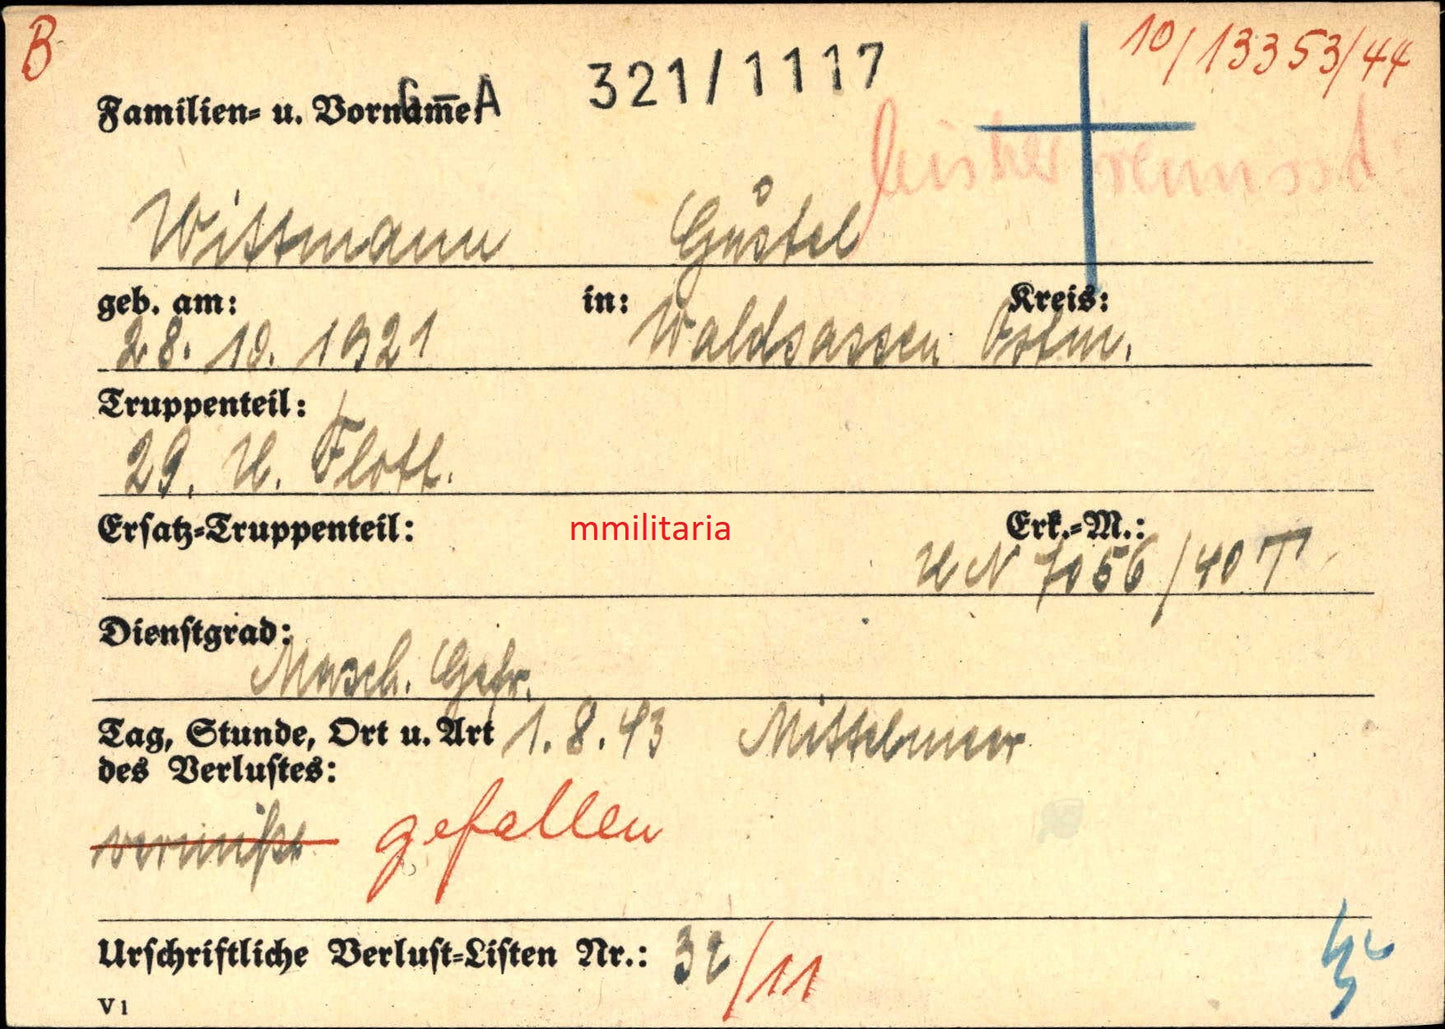 B
10/13353/44
G-A 321/1117
Familien= u. Vorname:
bisher vermisst
Wittmann Gustel
geb. am: in: Kreis:
28. 10. 1921 Waldsassen Ostm.
Truppenteil:
29. U. Flott.
Ersatz=Truppenteil: mmilitaria Erk.=M.:
UN 7056/40 T
Dienstgrad:
Masch. Gefr.
Tag, Stunde, Ort u. Art 1.8.43 Mittelmeer
des Verlustes:
vermißt gefallen
Urschriftliche Verlust=Listen Nr.: 32/11
V 1